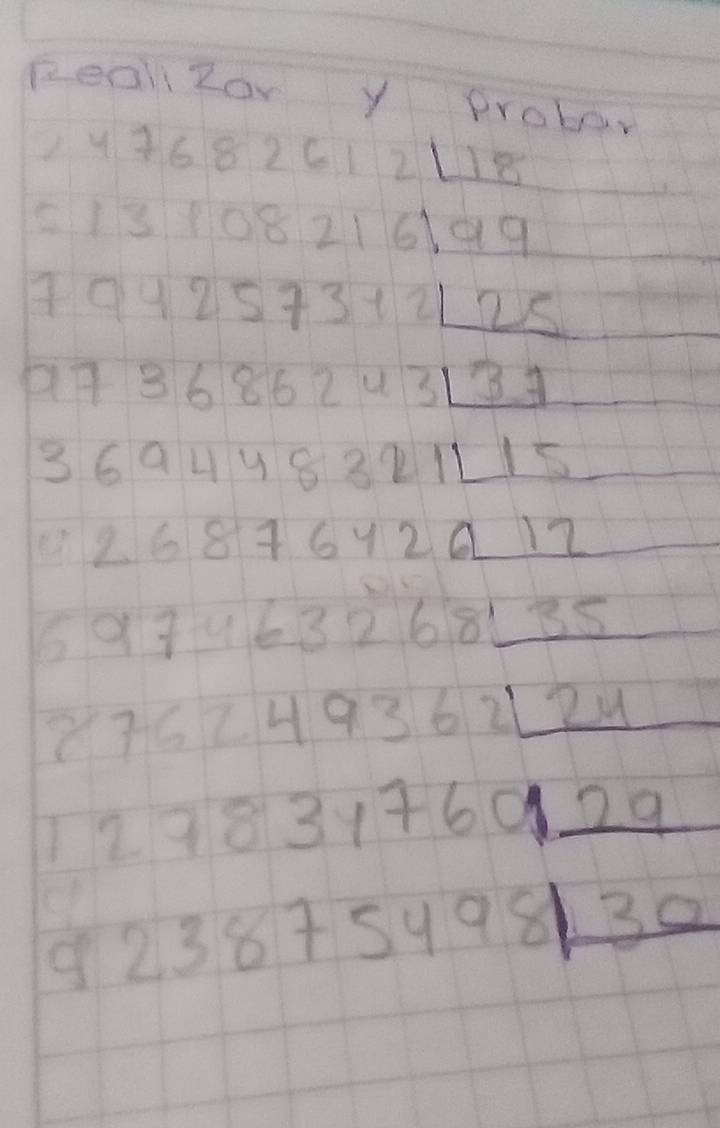 Realizar y Probar
247682612 18
513108216 99
794257312 25
973686243 37
369448321 15
926876429 12
697463268 35
876249362 24
127834760 29
9238875498 30